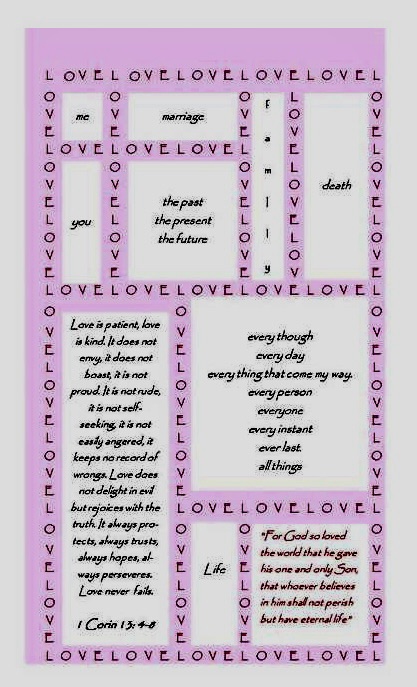 LOVELOVELOVELOVELOVEL
OVE
me
OVE
marriage
OVE
family
LOVELOVELOVE
death
OVELOVELOVE
LOVELOVELOVEL
OVELOVE
you
OVELOVE
the past
the present
the future
OVELOVE
LOVELOVELOVELOVELOVEL
OVELOVELOVELOVELOVE
Love is patient, love
is kind. It does not
envy, it does not
boast, it is not
proud. It is not rude,
it is not self-
seeking, it is not
easily angered, it
keeps no record of
wrongs. Love does
not delight in evil
but rejoices with the
truth. It always pro-
tects, always trusts,
always hopes, al-
ways perseveres.
Love never fails.
1 Corin 13: 4-8
OVELOVELOVELOVELOVE
every though
every day
every thing that come my way.
every person
everyone
every instant
ever last.
all things
OVELOVELOVELOVELOVE
LOVELOVELOVEL
Life
"For God so loved
the world that he gave
his one and only Son,
that whoever believes
in him shall not perish
but have eternal life"
LOVELOVELOVELOVELOVEL